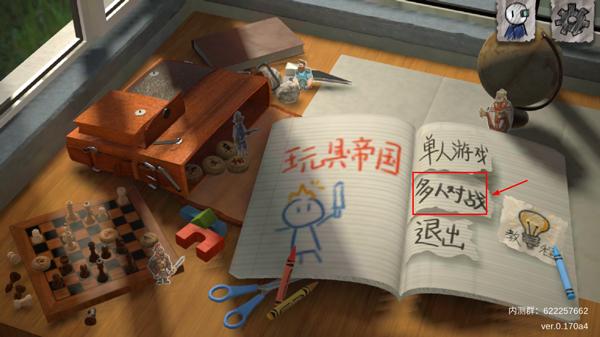 玩具帝国
单人游戏
多人对战
退出
内测群：622257662
ver.0.170a4